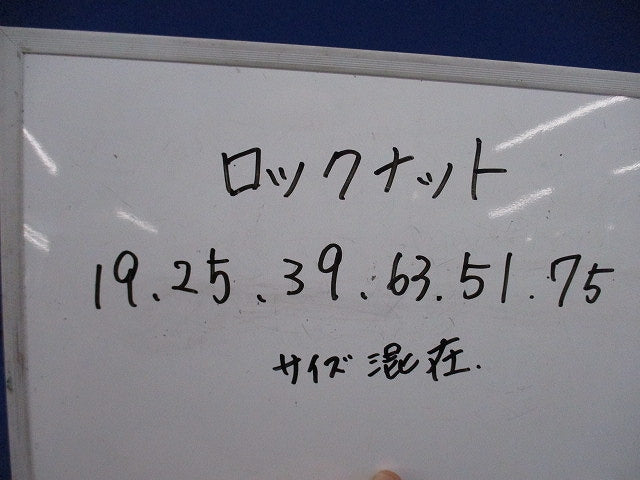 ロックナット
19.25.39.63.51.75
サイズ混在.